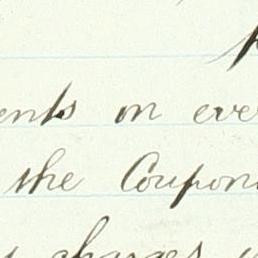 ents on eve
the Coupon
charges